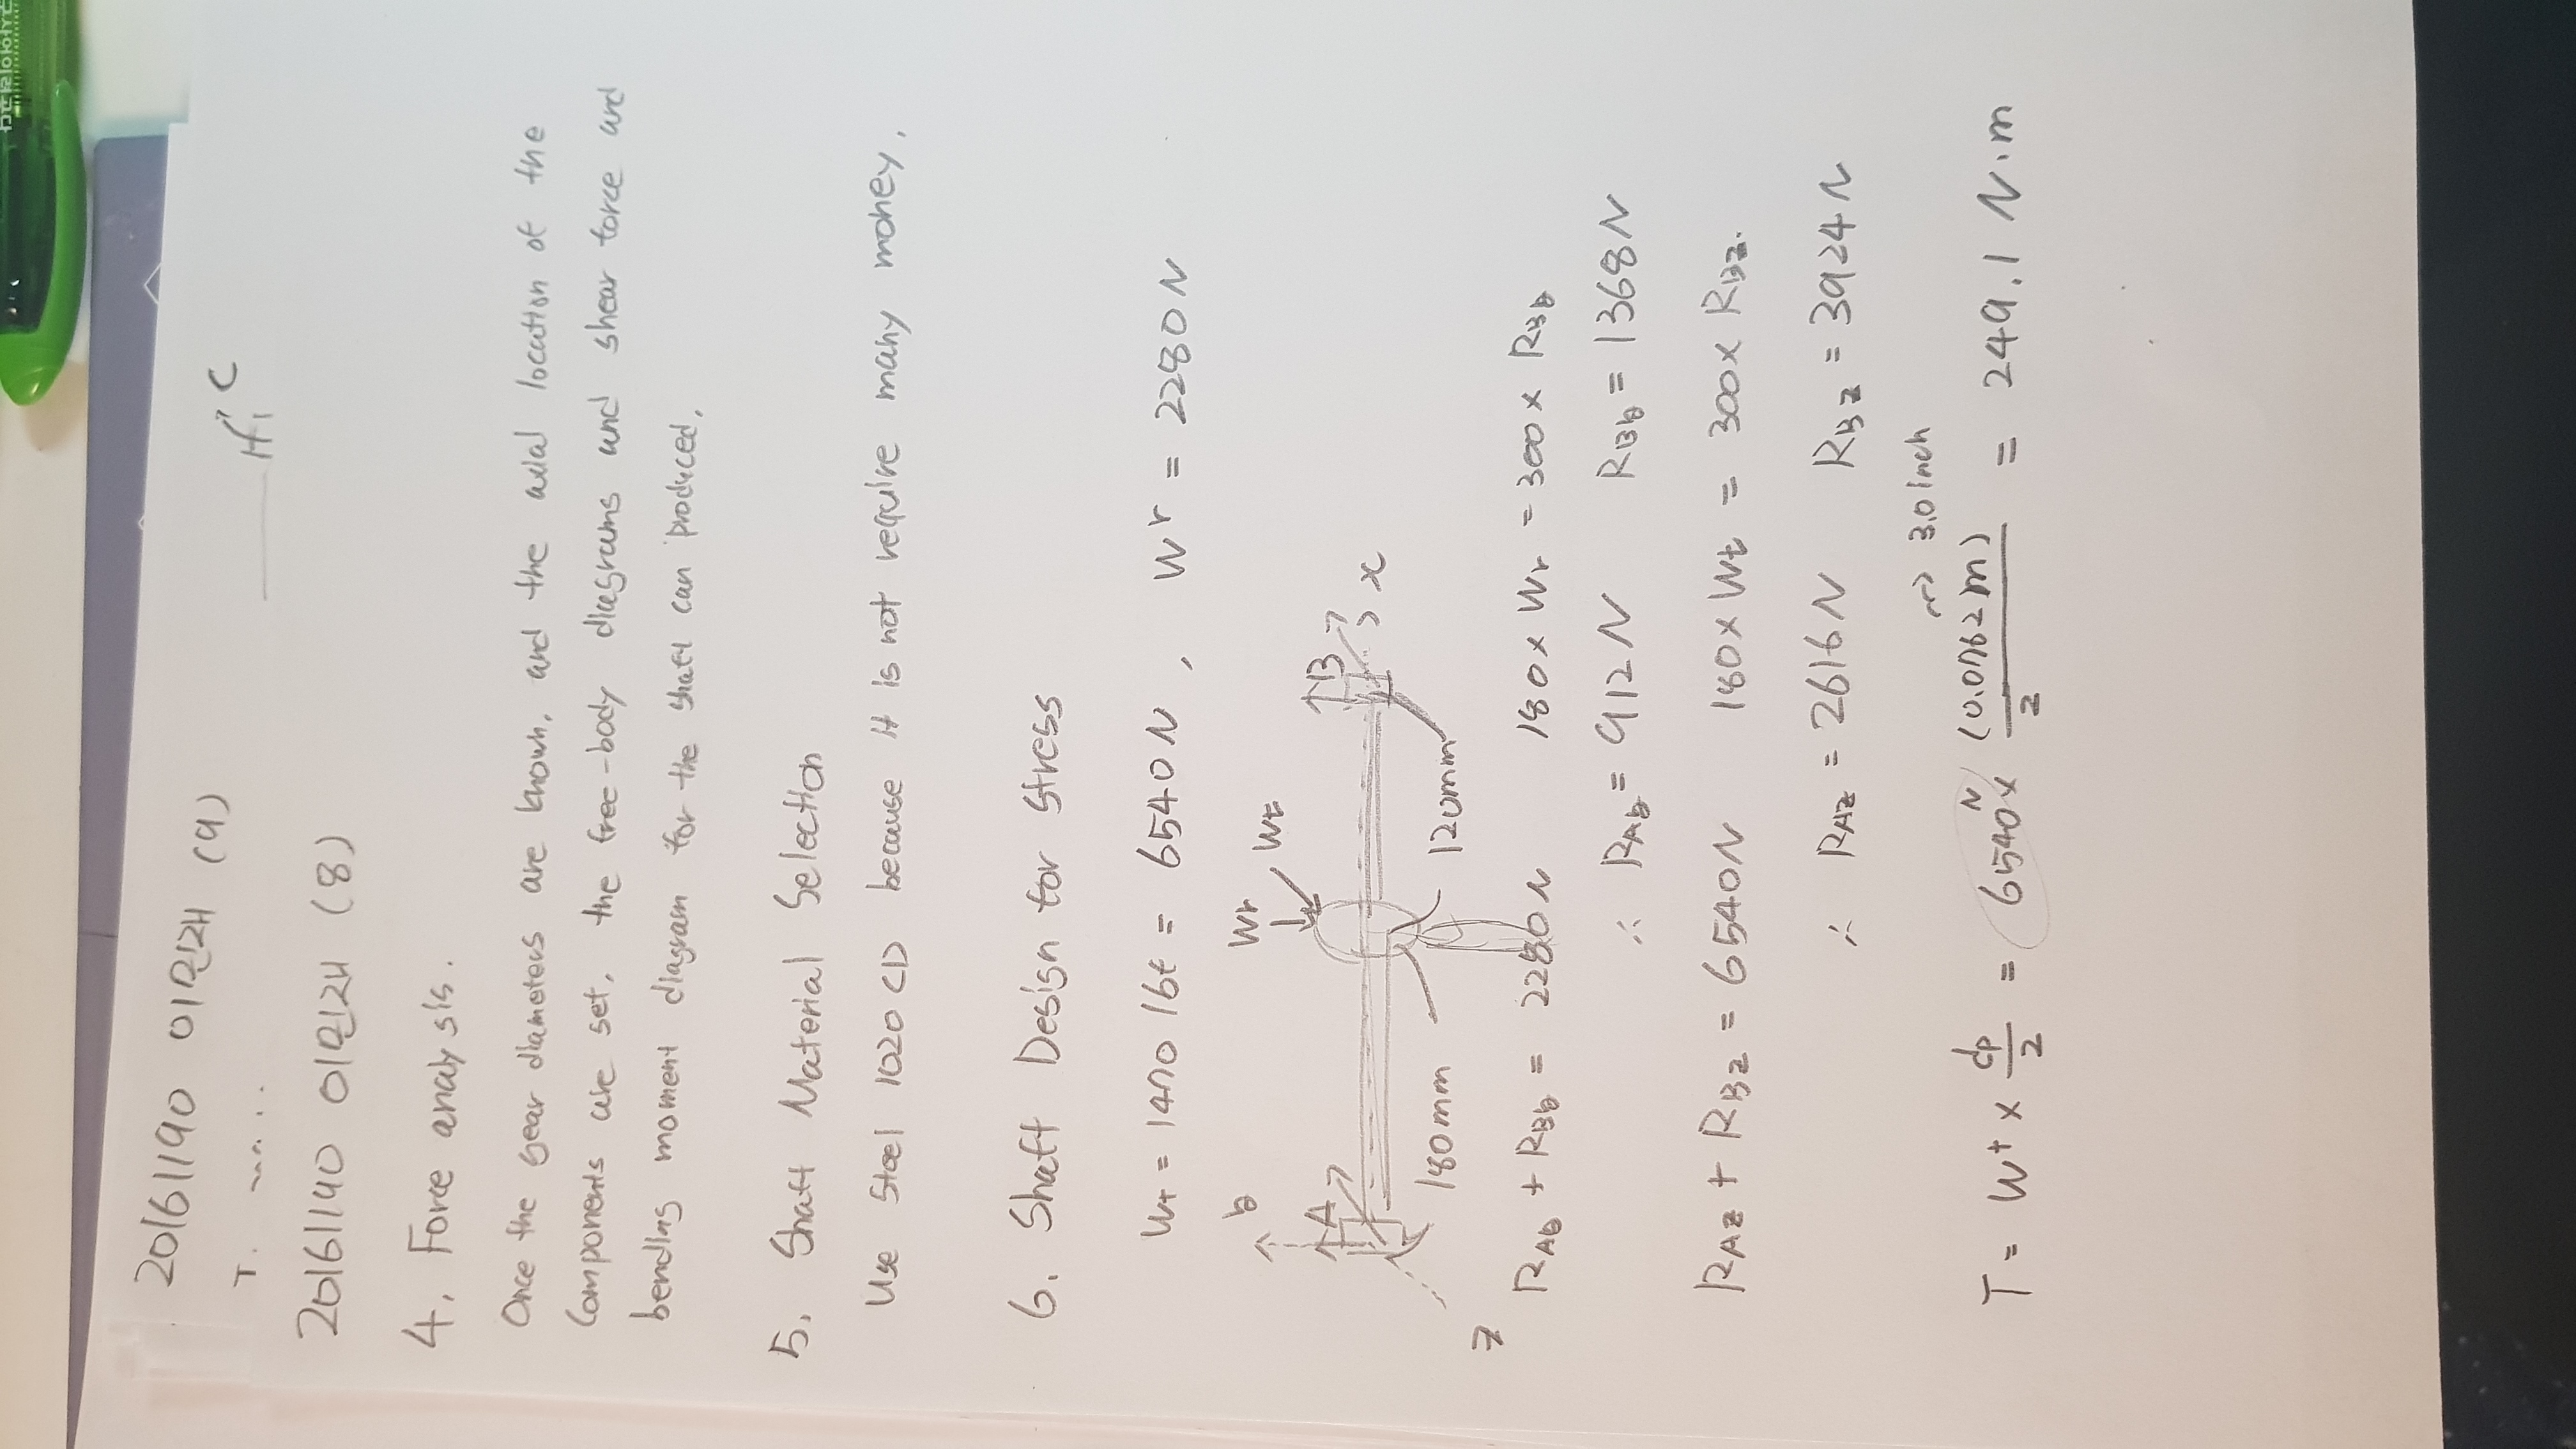 20161190 이민재 (9)
C
20161190 이민재 (8)
4. Force analysis.
Once the gear diameters are known, and the axial location of the
Components are set, the free-body diagrams and shear force and
bending moment diagram for the shaft can produced.
5. Shaft Material Selection
Use Steel 1020 CD because it is not require many money.
6. Shaft Design for stress
Wt = 1470 lbf = 6540 N , W^r = 2280 N
y
Wr
Wt
A
B
x
180mm
120mm
z
R_Ay + R_By = 2280 N 180 × Wr = 300 × R_By
∴ R_Ay = 912 N R_By = 1368 N
R_Az + R_Bz = 6540 N 180 × Wt = 300 × R_Bz.
∴ R_Az = 2616 N R_Bz = 3924 N
3.0 inch
T = W^t × dp/2 = 6540 N × (0.0762 m)/2 = 249.1 N·m